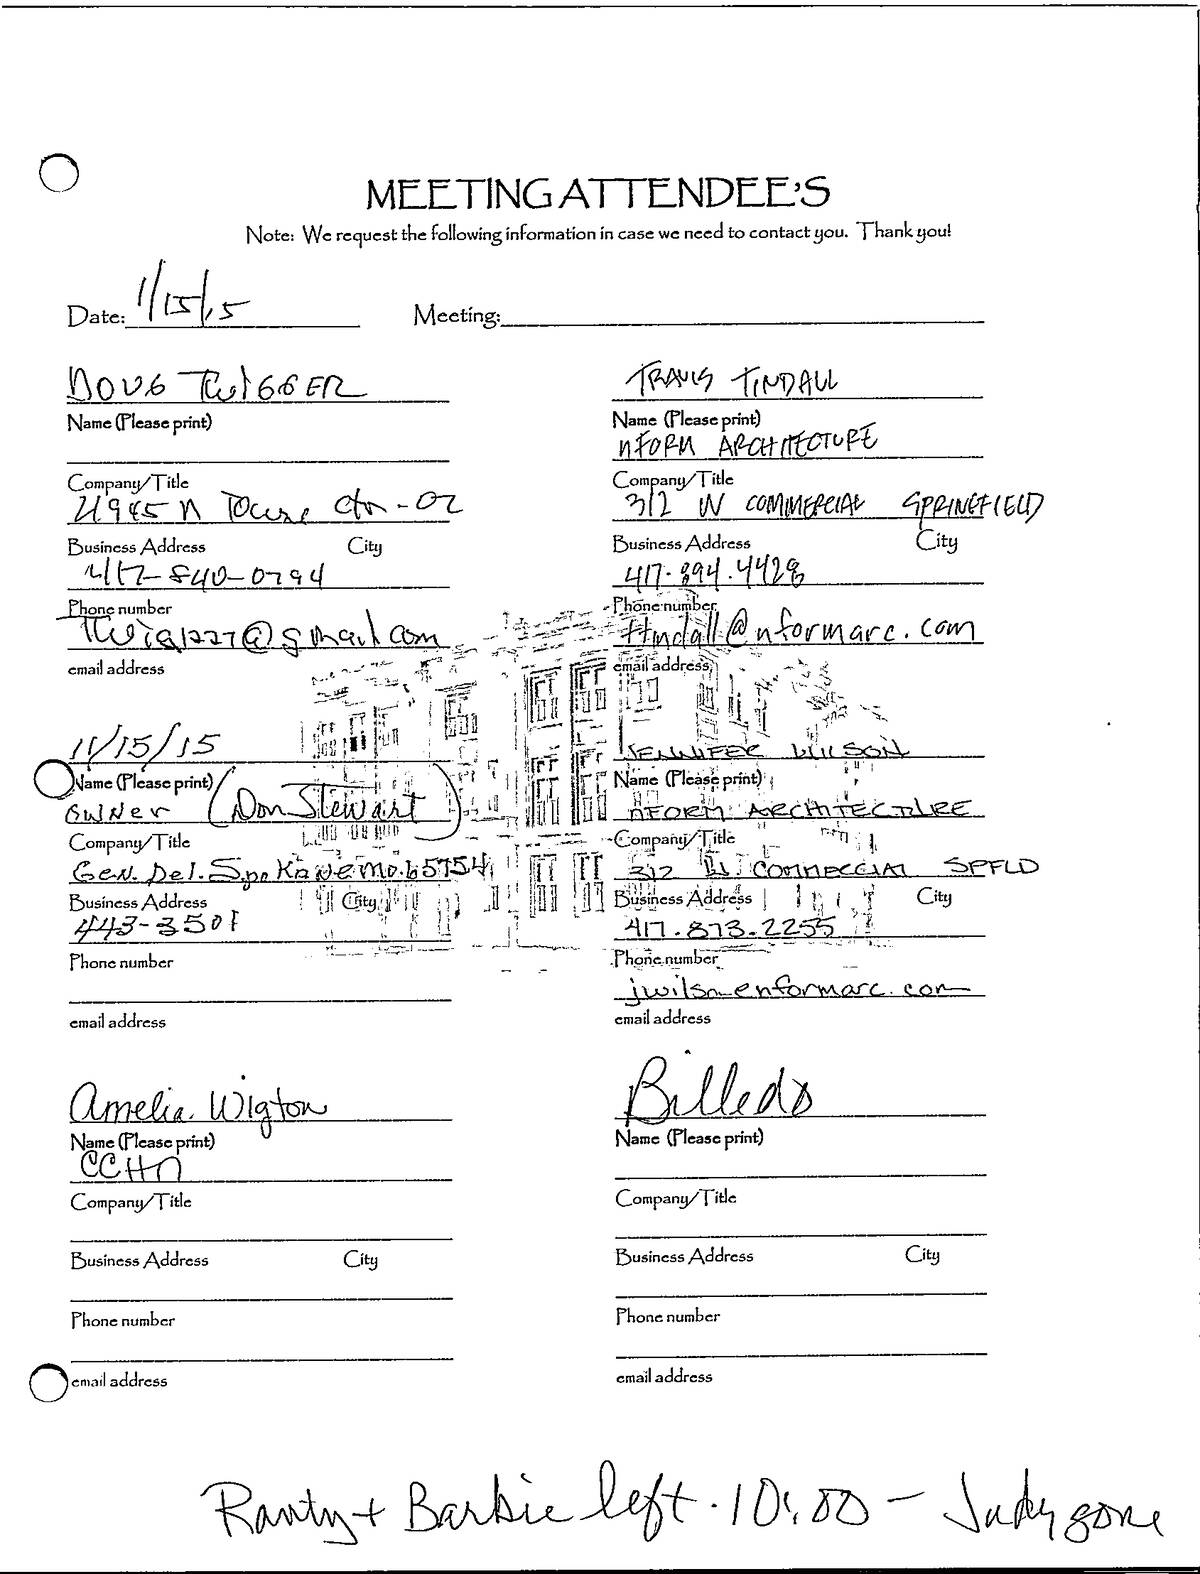 MEETING ATTENDEE'S
Note: We request the following information in case we need to contact you. Thank you!
Date: 1/15/15 Meeting:
DOUG TWIGGER
Name (Please print)
Company/Title
N Towne Ctr - OZ
Business Address City
417-840-0794
Phone number
@gmail.com
email address
TRAVIS TINDALL
Name (Please print)
nFORM ARCHITECTURE
Company/Title
312 W COMMERCIAL SPRINGFIELD
Business Address City
417.894.4428
Phone number
ttindall@nformarc.com
email address
11/15/15
Name (Please print)
OWNER (Don Stewart)
Company/Title
Gen. Del. Spokane Mo. 65754
Business Address City
443-3501
Phone number
email address
JENNIFER WILSON
Name (Please print)
nFORM ARCHITECTURE
Company/Title
312 W COMMERCIAL SPFLD
Business Address City
417.873.2255
Phone number
jwilson@nformarc.com
email address
Amelia Wigton
Name (Please print)
CCHD
Company/Title
Business Address City
Phone number
email address
Name (Please print)
Company/Title
Business Address City
Phone number
email address
Ranty + Barbie left . 10:00 - Judy gone